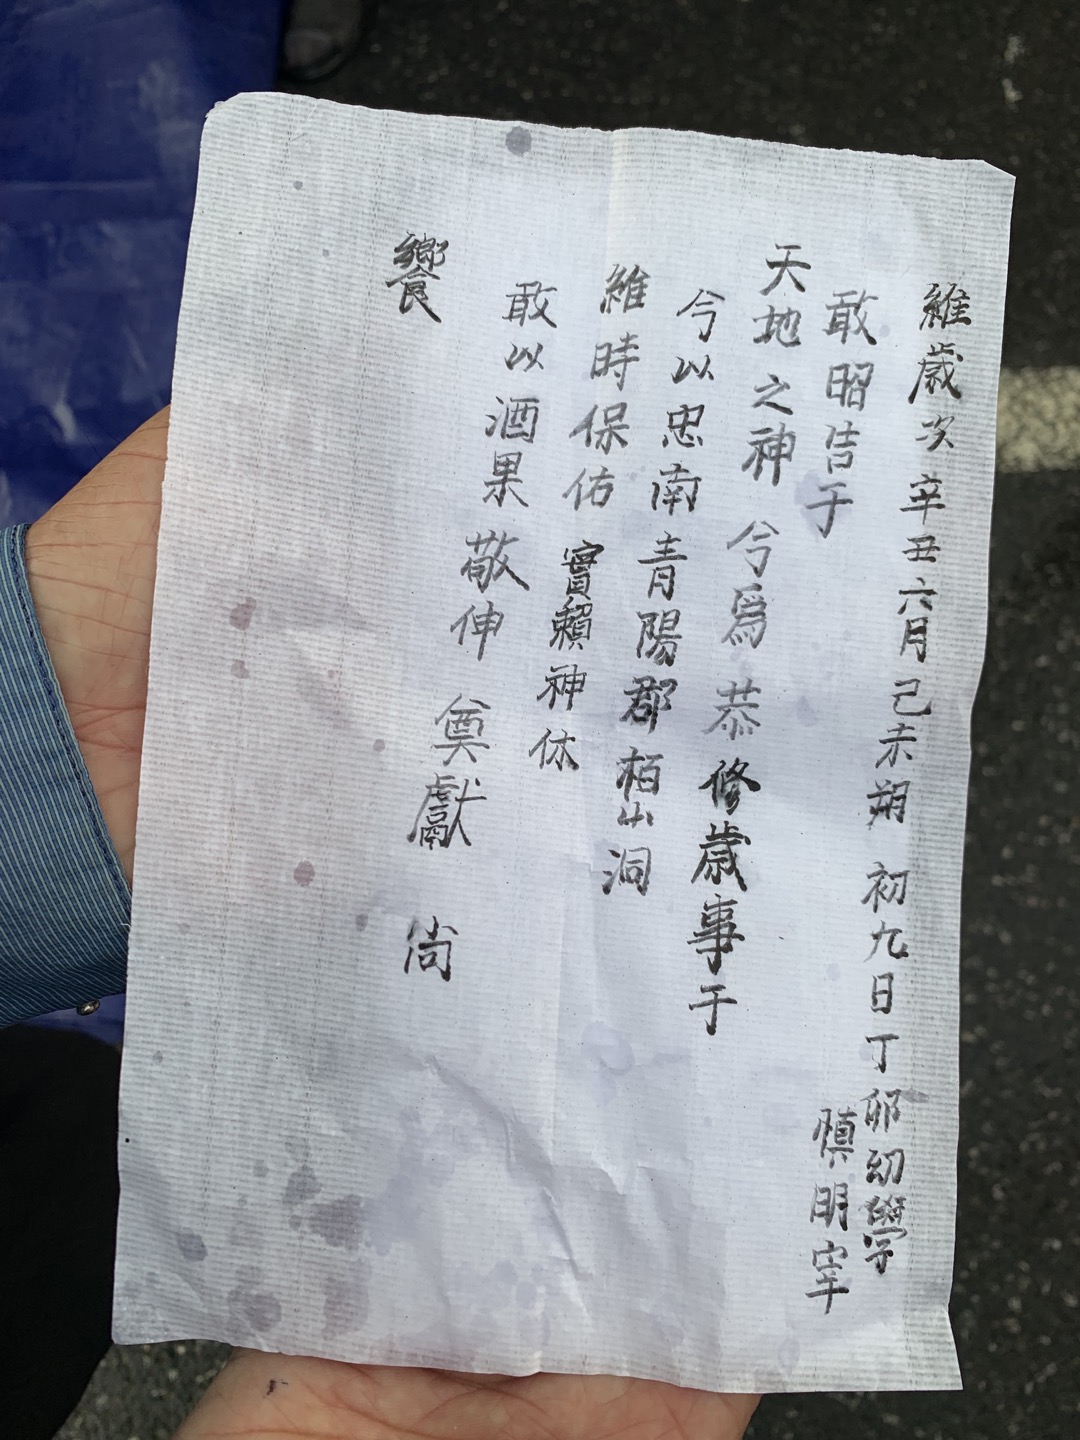 維歲次 辛丑六月己未朔 初九日丁卯幼學
愼明宰
敢昭告于
天地之神 今爲恭修歲事于
今以忠南青陽郡栢山洞
維時保佑 實賴神休
敢以酒果敬伸 奠獻 尙
饗